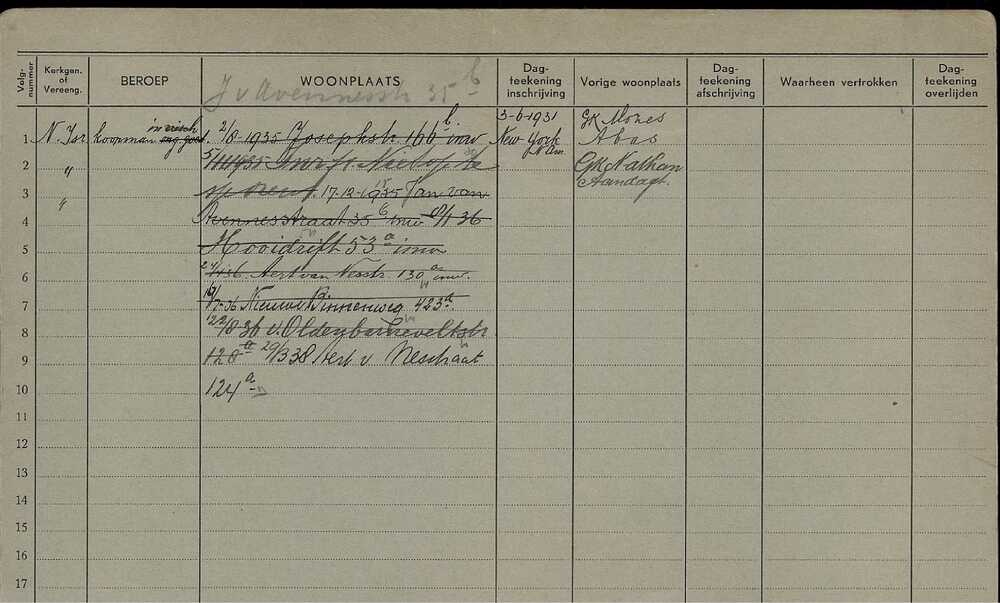 Volg-nummer
Kerkgen. of Vereeng.
BEROEP
WOONPLAATS
Dag-teekening inschrijving
Vorige woonplaats
Dag-teekening afschrijving
Waarheen vertrokken
Dag-teekening overlijden
J v Avennesstr 35 b
1 N. Isr koopman in visch 2/8-1935 Josephstr. 166 b inw 3-6-1931 New York N Am. GK Mozes Abas
2 " GK Nathan Aandagt.
3 " 17-12-1935 Jan van
4 Avennesstraat 35 b inw 8/1 36
5 Hooidrift 53 a inw
6 Aert van Nesstr. 130 a inw.
7 16/7-36 Nieuwe Binnenweg 423 a.
8 22/8 36 v. Oldenbarneveltstr
9 128 a 29/3 38 Aert v. Nesstraat
10 124 a
11
12
13
14
15
16
17